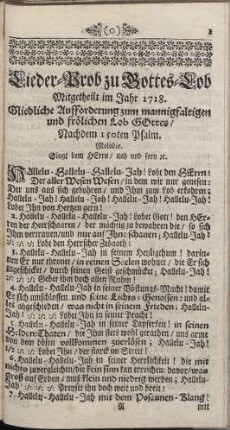 (o)
Lieder-Prob zu Gottes-Lob
Mitgetheilt im Jahr 1718.
Gliedliche Aufforderung zum mannigfaltigen
und frölichen Lob GOttes/
Nachdem 150ten Psalm.
Melodie.
Singt dem HErrn / nah und fern ꝛc.
HAllelu- Hallelu- Hallelu- Jah! Lobt den HErrn:
Der aller Wesen Wesen / in dem wir nur genesen:
Der uns aus sich gebohren / und Ihm zum Lob erkohren:
Hallelu- Jah! Hallelu- Jah! Hallelu- Jah! Hallelu- Jah!
Lobt Ihn von Herzen gern!
2. Hallelu- Hallelu- Hallelu- Jah! Lobet Gott! den HEr-
ren der Heerschaaren / der mächtig zu bewahren die / so sich
Ihm vertrauen / und nur auf Ihn schauen; Hallelu- Jah!
Lobt den Herrscher Zebaoth!
3. Hallelu- Hallelu- Jah in seinem Heiligthum!
Er zur throne / in seinen Seelen wohne / die Er sich
angeschicket / durch seinen Geist geschmücket; Hallelu- Jah!
Gebet ihm doch allen Ruhm!
4. Hallelu- Hallelu- Jah in seiner Macht! damit
Er sich umschlossen und seine Reichs-Genossen: und al-
les eingeschlossen / was nicht in seinem Frieden; Hallelu-
Jah! Lobet Ihn in seiner Pracht!
5. Hallelu- Hallelu- Jah in seiner Tapferkeit! in seinen
Helden-Thaten / die Ihm stets wohl gerathen / und arme
von dem bösen vollkommen zuerlösen; Hallelu- Jah!
Lobet Ihn / der starck im Streit!
6. Hallelu- Hallelu- Jah in seiner Herrlichkeit! die mit
nichts zuvergleichen / die kein sinn kan erreichen: davor / was
groß auf Erden / muß klein und niedrig werden; Hallelu-
Jah! Preiset ihn doch weit und breit!
7. Hallelu- Hallelu- Jah mit dem Posaunen-Klang!
A
mit